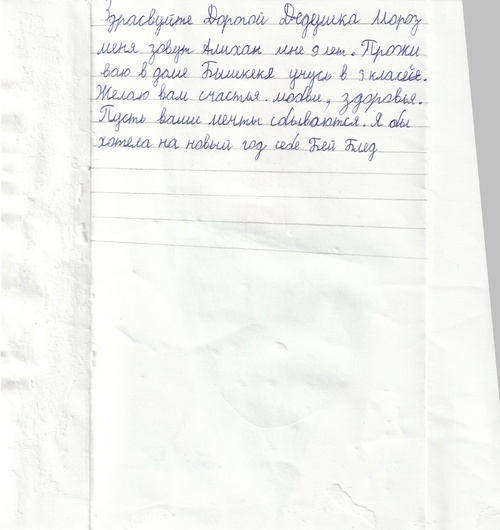 Здрасвуйте Дорогой Дедушка Мороз
меня зовут Алихан мне 9 лет. Прожи
ваю в доме Бишкеке учусь в 3 класее.
Желаю вам счастья. любви, здоровья.
Пусть ваши мечты сбываются. Я обы
хотела на новый год себе Бей Блед